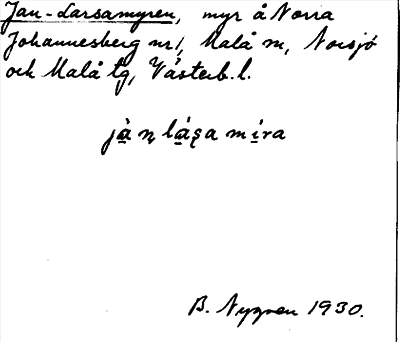 Jan-Larsamyren, myr å Norra
Johannesberg nr 1, Malå sn, Norsjö
och Malå tg, Västerb. l.
jà̱ ṇ lá̱ṣa mí̱ra
B. Nygren 1930.